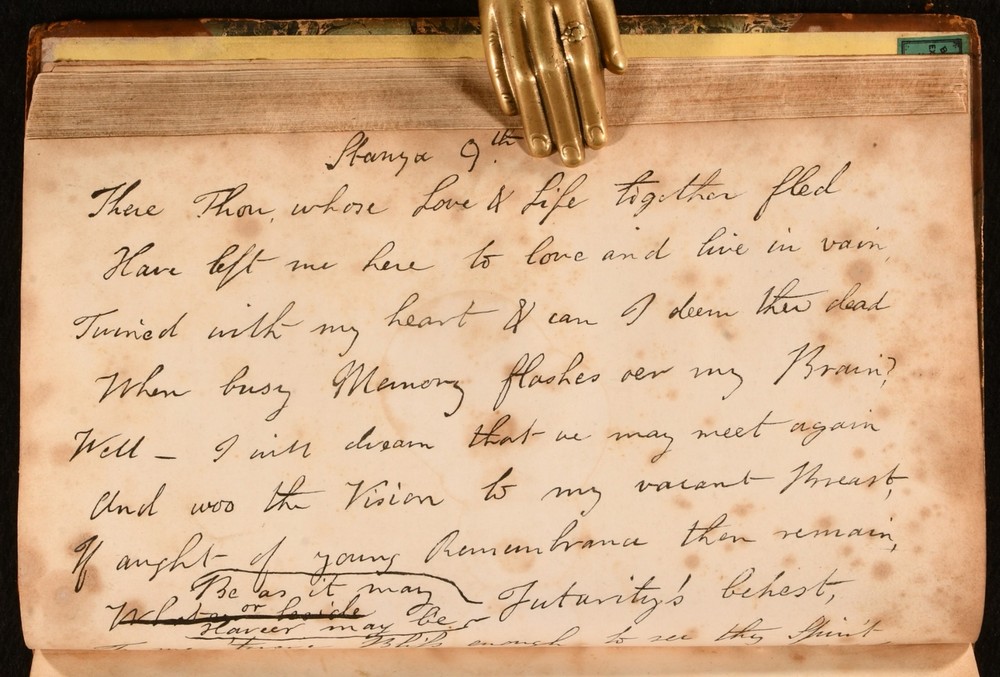 Stanza 9th
There Thou, whose Love & Life together fled
Have left me here to love and live in vain,
Twined with my heart & can I deem thee dead
When busy Memory flashes oer my Brain?
Well – I will dream that we may meet again
And woo the Vision to my vacant Breast,
If aught of young Remembrance then remain,
Be as it may
or beside Futurity's behest,
Howeer may be
Bliss enough to see thy Spirit